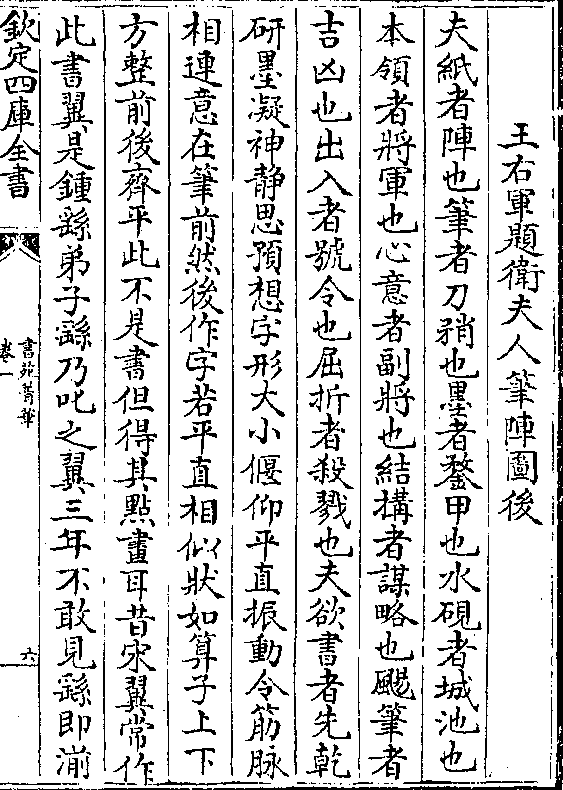 王右軍題衛夫人筆陣圖後
夫紙者陣也筆者刀矟也墨者鍪甲也水硯者城池也
本領者將軍也心意者副將也結構者謀略也颺筆者
吉凶也出入者號令也屈折者殺戮也夫欲書者先乾
研墨凝神靜思預想字形大小偃仰平直振動令筋脉
相連意在筆前然後作字若平直相似狀如算子上下
方整前後齊平此不是書但得其點畫耳昔宋翼常作
此書翼是鍾繇弟子繇乃叱之翼三年不敢見繇即潸
欽定四庫全書
書苑菁華
卷一
六